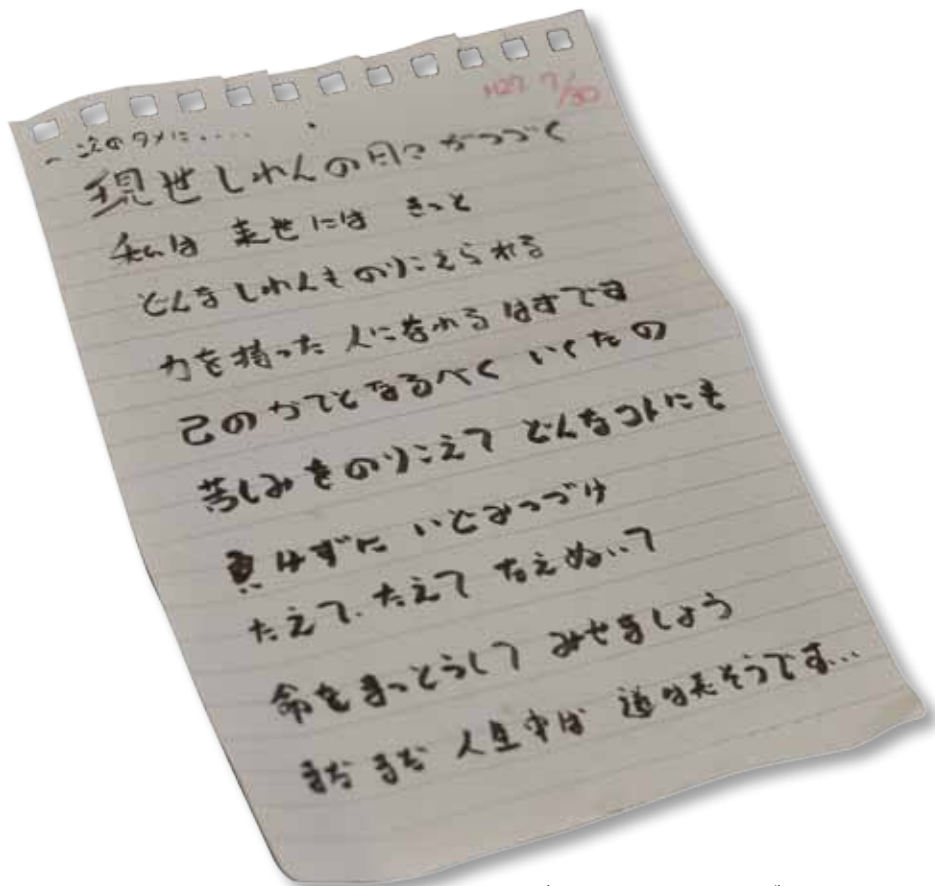 H27 7/30
〜次のタメに....
現世しれんの日々がつづく
私は 来世には きっと
どんなしれんものりこえられる
力を持った 人になれる はずです
己のかてとなるべく いくたの
苦しみをのりこえて どんなコトにも
負けずに いどみつづけ
たえて、たえて たえぬいて
命をまっとうして みせましょう
まだまだ 人生中は 道は長そうです...